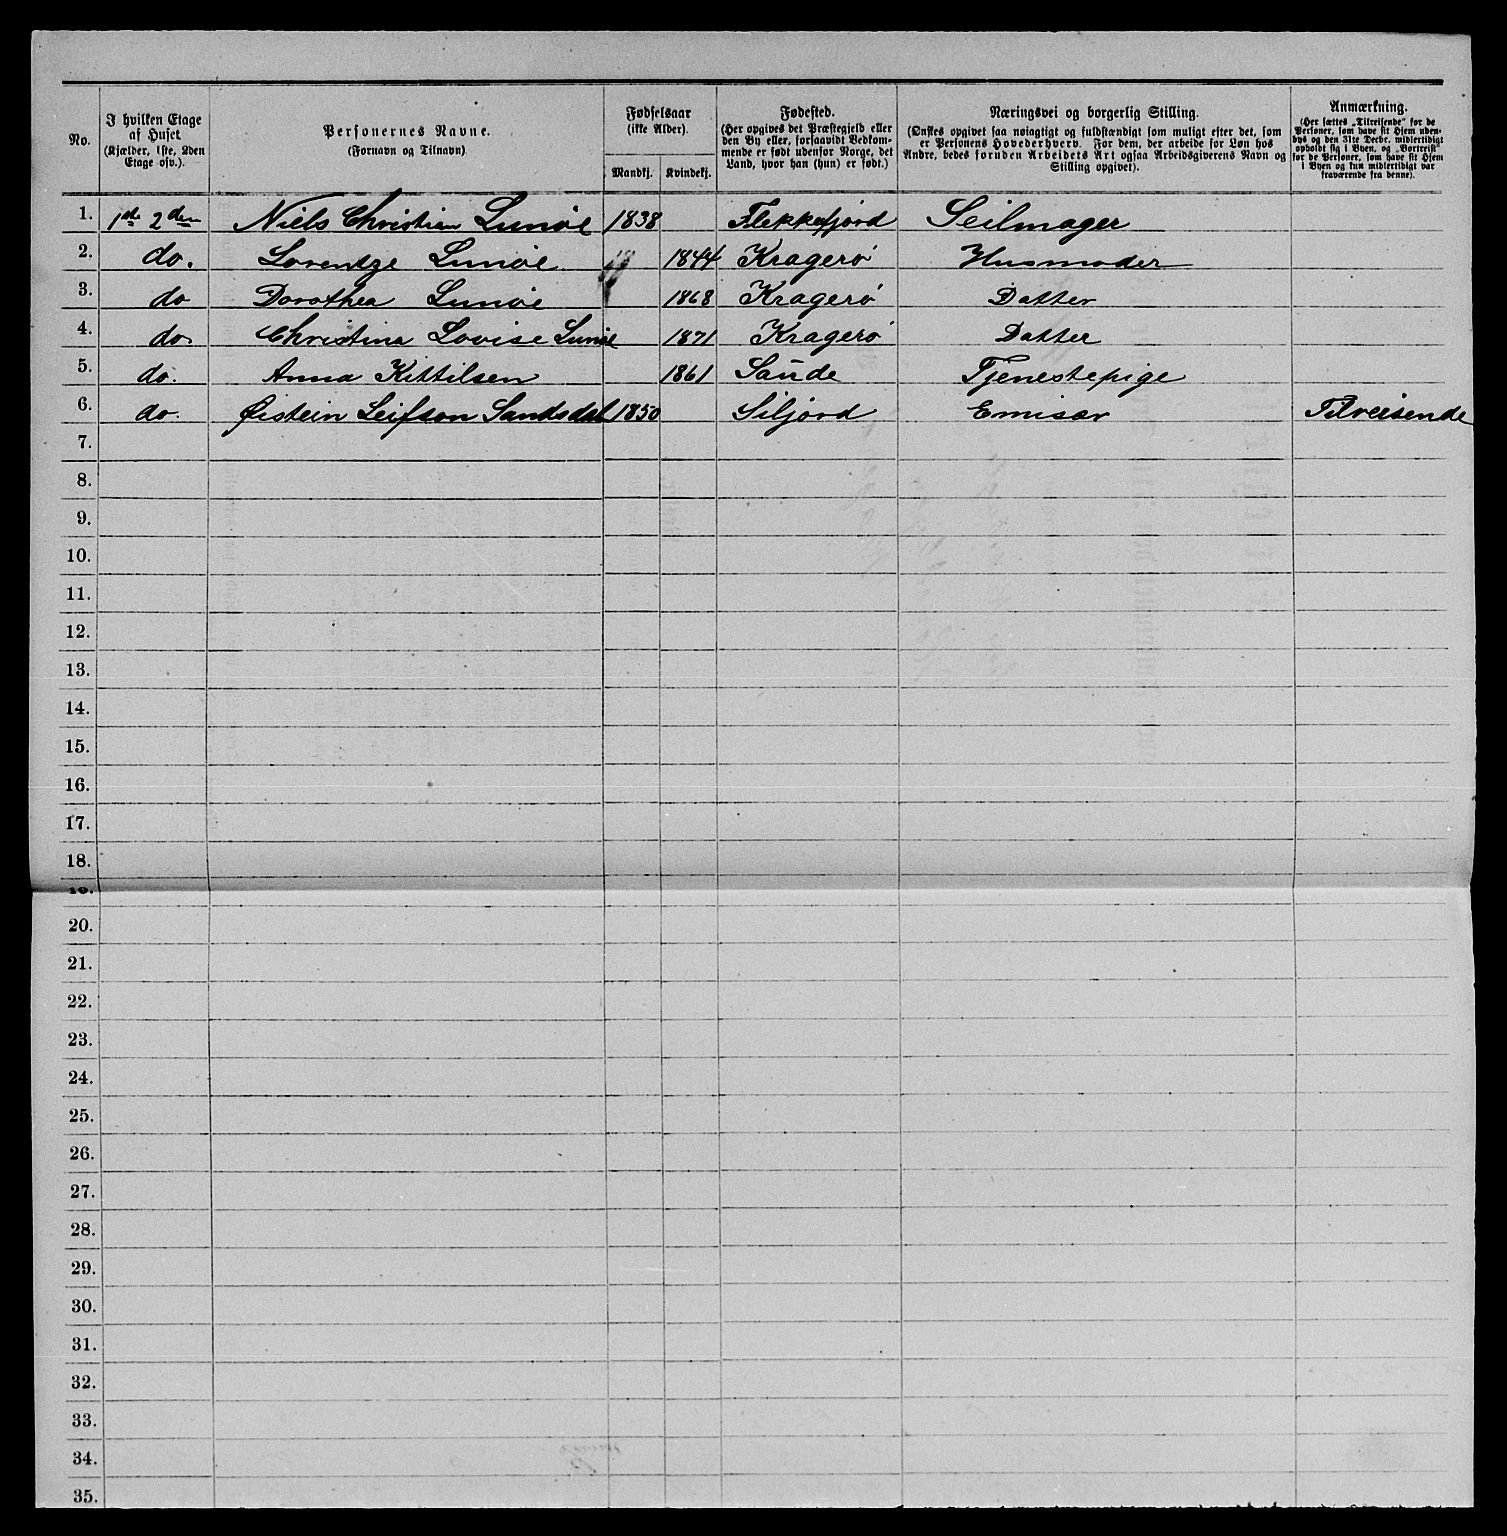 No.
I hvilken Etage
af Huset
(Kjælder, 1ste, 2den
Etage osv.).
Personernes Navne.
(Fornavn og Tilnavn)
Fødselsaar
(ikke Alder).
Mandkj. Kvindekj.
Fødested.
(Her opgives det Præstegjeld eller
den By eller, forsaavidt Vedkom-
mende er født udenfor Norge, det
Land, hvor han (hun) er født.)
Næringsvei og borgerlig Stilling.
(Ønskes opgivet saa nøiagtigt og fuldstændigt som muligt efter det, som
er Personens Hovederhverv. For dem, der arbeide for Løn hos
Andre, bedes foruden Arbeidets Art ogsaa Arbeidsgiverens Navn og
Stilling opgivet).
Anmærkning.
(Her sættes „Tilreisende" for de
Personer, som have sit Hjem uden-
bys og den 31te Decbr. midlertidigt
opholdt sig i Byen, og „Bortreist"
for de Personer, som have sit Hjem
i Byen og kun midlertidigt var
fraværende fra denne).
1. 1ste 2den Niels Christian Lunöe 1838 Flekkefjord Seilmager
2. do. Lorentze Lunöe 1844 Kragerö Husmoder
3. do Dorothea Lunöe 1868 Kragerö Datter
4. do. Christina Lovise Lunöe 1871 Kragerö Datter
5. do. Anna Kittilsen 1861 Saude Tjenestepige
6. do. Øistein Leifson Sandsdal 1850 Siljord Emisær Tilreisende
7.
8.
9.
10.
11.
12.
13.
14.
15.
16.
17.
18.
19.
20.
21.
22.
23.
24.
25.
26.
27.
28.
29.
30.
31.
32.
33.
34.
35.